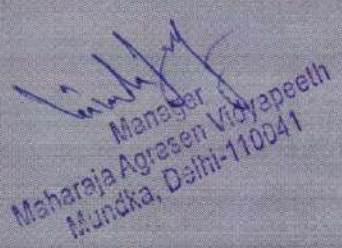 Manager
Maharaja Agresen Vidyapeeth
Mundka, Delhi-110041